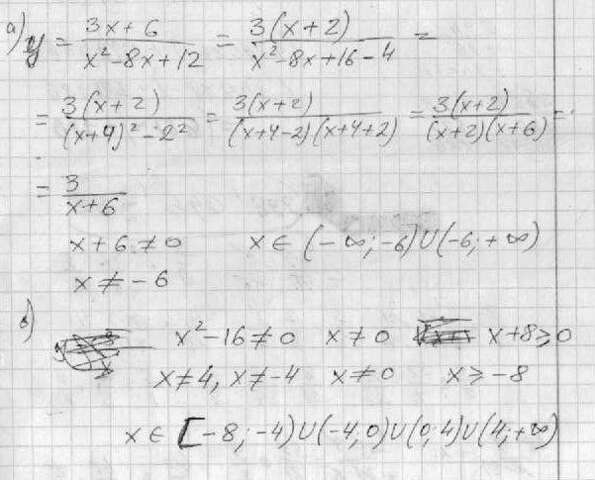 а) y = (3x+6)/(x²-8x+12) = 3(x+2)/(x²-8x+16-4) =
= 3(x+2)/((x+4)²-2²) = 3(x+2)/((x+4-2)(x+4+2)) = 3(x+2)/((x+2)(x+6)) =
= 3/(x+6)
x+6≠0 x∈(-∞;-6)∪(-6;+∞)
x≠-6
в)
x²-16≠0 x≠0 x+8≥0
x≠4, x≠-4 x≠0 x≥-8
x∈[-8;-4)∪(-4,0)∪(0;4)∪(4;+∞)